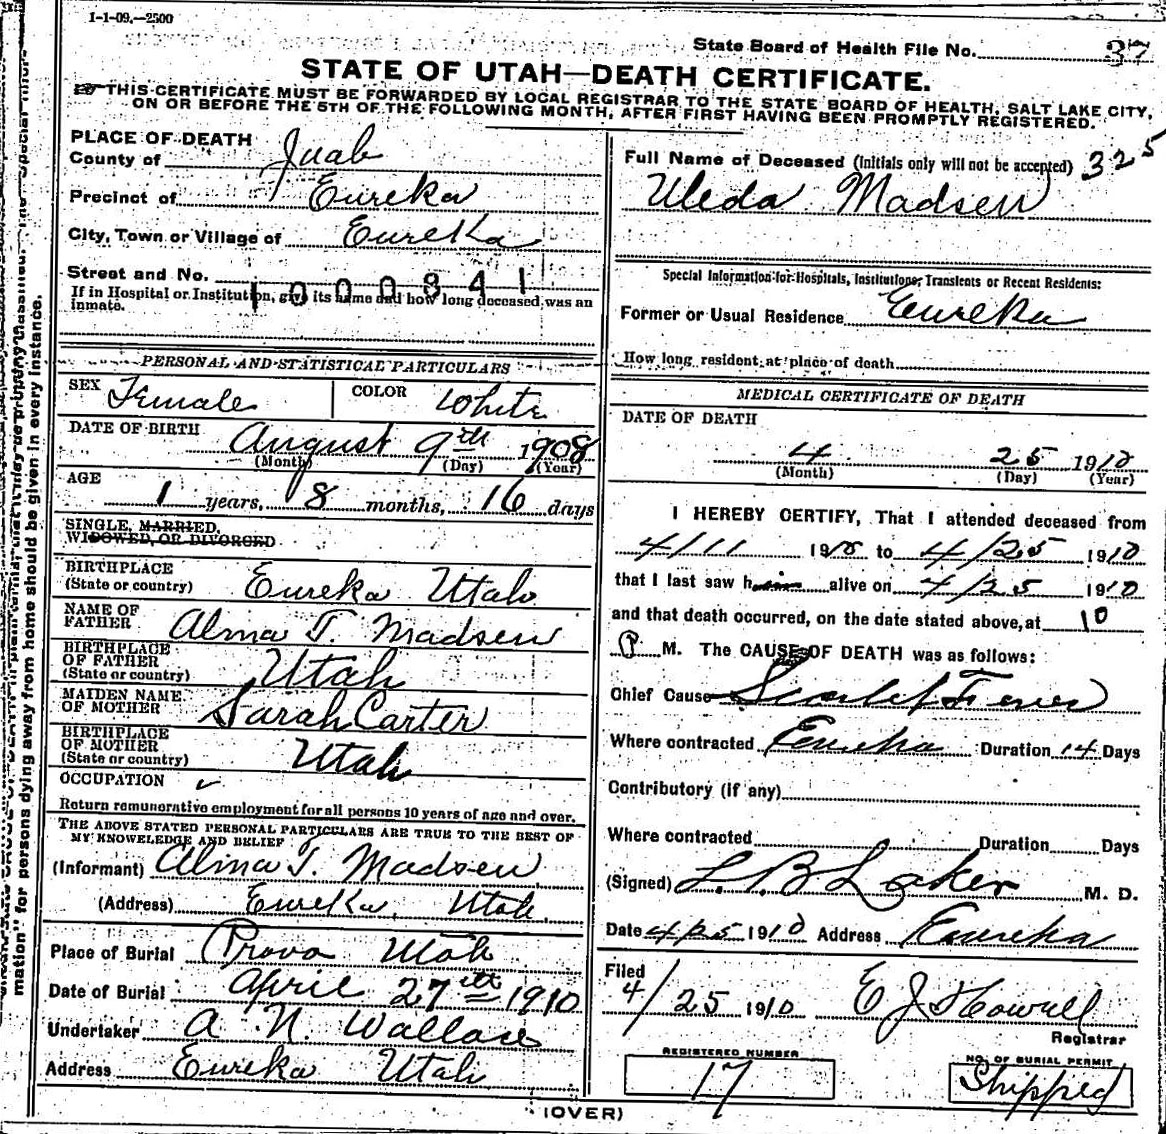 1-1-09.—2500
State Board of Health File No. 37
STATE OF UTAH—DEATH CERTIFICATE.
THIS CERTIFICATE MUST BE FORWARDED BY LOCAL REGISTRAR TO THE STATE BOARD OF HEALTH, SALT LAKE CITY,
ON OR BEFORE THE 5TH OF THE FOLLOWING MONTH, AFTER FIRST HAVING BEEN PROMPTLY REGISTERED.
PLACE OF DEATH
County of Juab
Precinct of Eureka
City, Town or Village of Eureka
Street and No.
1000341
If in Hospital or Institution, give its name and how long deceased was an
inmate.
PERSONAL AND STATISTICAL PARTICULARS
SEX Female COLOR White
DATE OF BIRTH August 9th 1908
(Month) (Day) (Year)
AGE 1 years, 8 months, 16 days
SINGLE, MARRIED,
WIDOWED, OR DIVORCED
BIRTHPLACE
(State or country) Eureka Utah
NAME OF
FATHER Alma T. Madsen
BIRTHPLACE
OF FATHER
(State or country) Utah
MAIDEN NAME
OF MOTHER Sarah Carter
BIRTHPLACE
OF MOTHER
(State or country) Utah
OCCUPATION ✓
Return remunerative employment for all persons 10 years of age and over.
THE ABOVE STATED PERSONAL PARTICULARS ARE TRUE TO THE BEST OF
MY KNOWELEDGE AND BELIEF
(Informant) Alma T. Madsen
(Address) Eureka, Utah
Place of Burial Provo Utah
Date of Burial April 27th 1910
Undertaker A. N. Wallace
Address Eureka Utah
Full Name of Deceased (Initials only will not be accepted) 325
Uleda Madsen
Special Information for Hospitals, Institutions, Transients or Recent Residents:
Former or Usual Residence Eureka
How long resident at place of death
MEDICAL CERTIFICATE OF DEATH
DATE OF DEATH
4 25 1910
(Month) (Day) (Year)
I HEREBY CERTIFY, That I attended deceased from
4/11 1910 to 4/25 1910
that I last saw h alive on 4/25 1910
and that death occurred, on the date stated above, at 10
P M. The CAUSE OF DEATH was as follows:
Chief Cause Scarlet Fever
Where contracted Eureka Duration 14 Days
Contributory (if any)
Where contracted Duration Days
(Signed) L. B. Laker M. D.
Date 4/25 1910 Address Eureka
Filed
4/25 1910 E J Howell
Registrar
REGISTERED NUMBER
17
NO. OF BURIAL PERMIT
Shipped
(OVER)
mation" for persons dying away from home should be given in every instance.